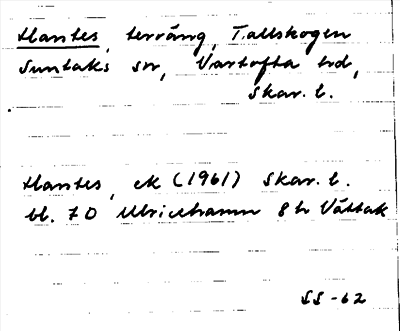 Hantes, terräng, Tallskogen
Suntaks sn, Vartofta hd,
Skar. l.
Hantes, ek (1961) Skar. l.
bl. 7 D Ulricehamn 8 h Vättak
SS -62